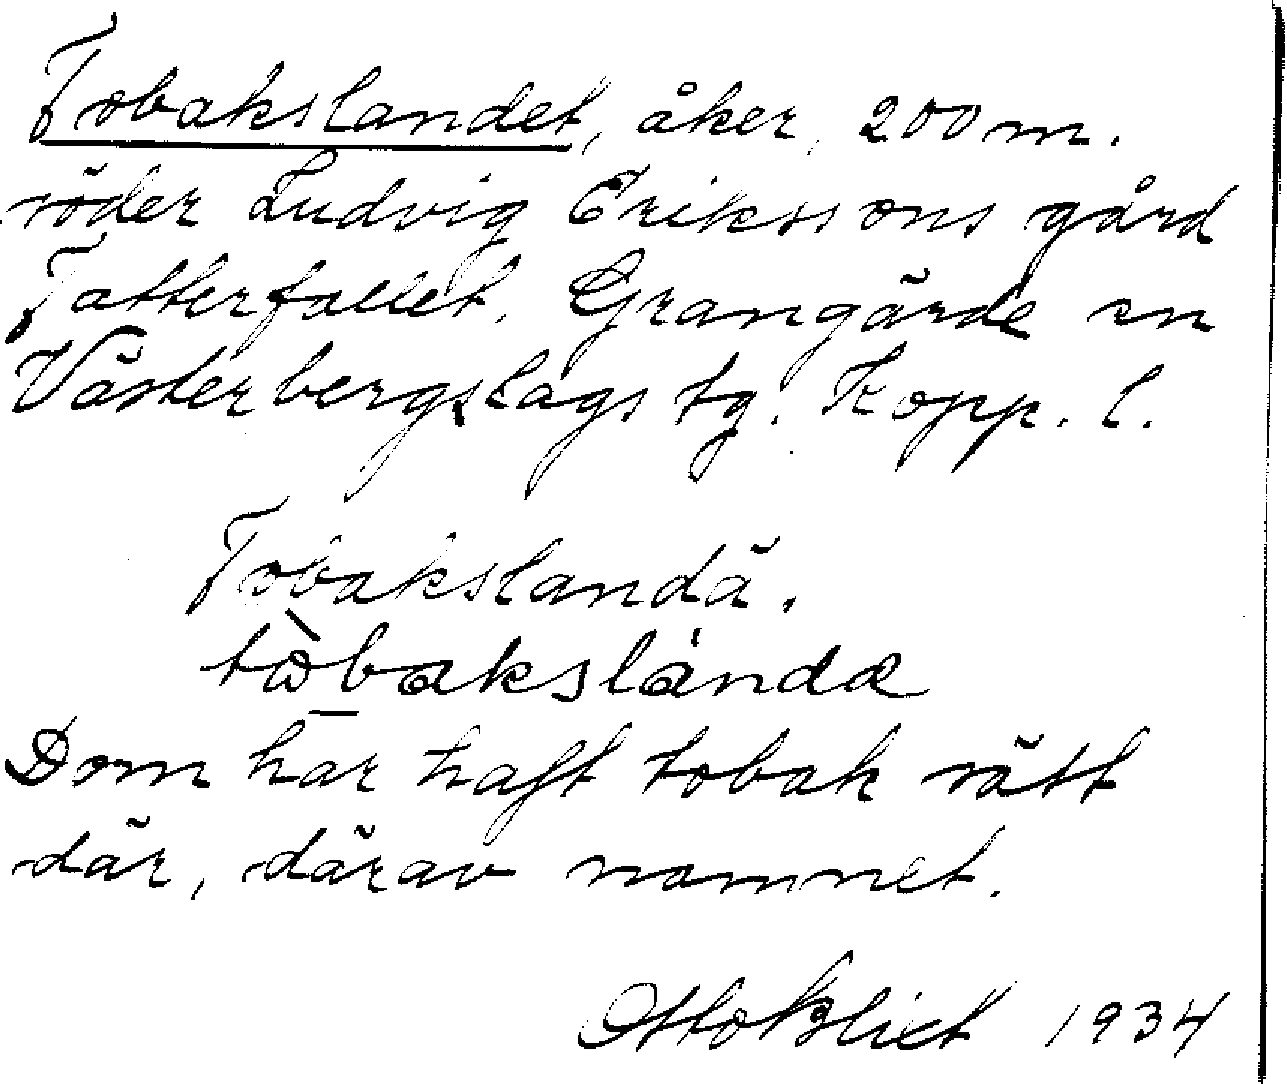 Tobakslandet, åker, 200 m.
söder Ludvig Erikssons gård
Tatterfallet. Grangärde sn
Västerbergslags tg. Kopp. l.
Tobakslandä.
tòbakslándæ
Dom har haft tobak sått
där, därav namnet.
Otto Blixt 1934